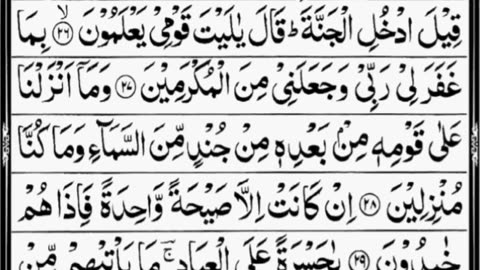 قِيْلَ ادْخُلِ الْجَنَّةَ ؕ قَالَ يٰلَيْتَ قَوْمِيْ يَعْلَمُوْنَ ۙ﴿۲۶﴾ بِمَا
غَفَرَ لِيْ رَبِّيْ وَجَعَلَنِيْ مِنَ الْمُكْرَمِيْنَ ﴿۲۷﴾ وَمَاۤ اَنْزَلْنَا
عَلٰى قَوْمِهٖ مِنْۢ بَعْدِهٖ مِنْ جُنْدٍ مِّنَ السَّمَآءِ وَمَا كُنَّا
مُنْزِلِيْنَ ﴿۲۸﴾ اِنْ كَانَتْ اِلَّا صَيْحَةً وَّاحِدَةً فَاِذَا هُمْ
خٰمِدُوْنَ ﴿۲۹﴾ يٰحَسْرَةً عَلَى الْعِبَادِ ۚ مَا يَاْتِيْهِمْ مِّنْ